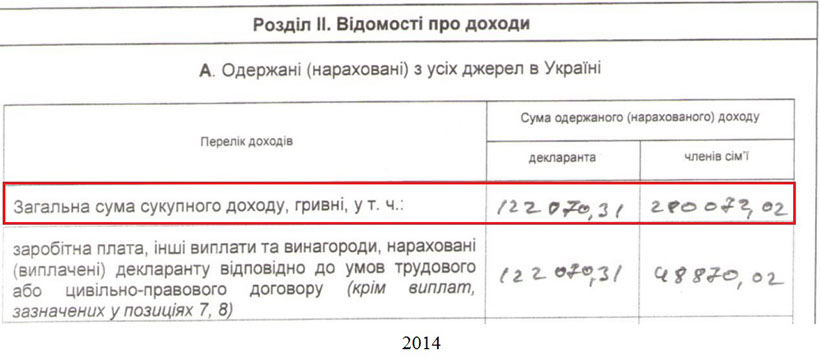 Розділ II. Відомості про доходи
А. Одержані (нараховані) з усіх джерел в Україні
Перелік доходів
Сума одержаного (нарахованого) доходу
декларанта
членів сім'ї
Загальна сума сукупного доходу, гривні, у т. ч.:
122 070,31
заробітна плата, інші виплати та винагороди, нараховані
(виплачені) декларанту відповідно до умов трудового
або цивільно-правового договору (крім виплат,
зазначених у позиціях 7, 8)
122070,31
48870,02
2014